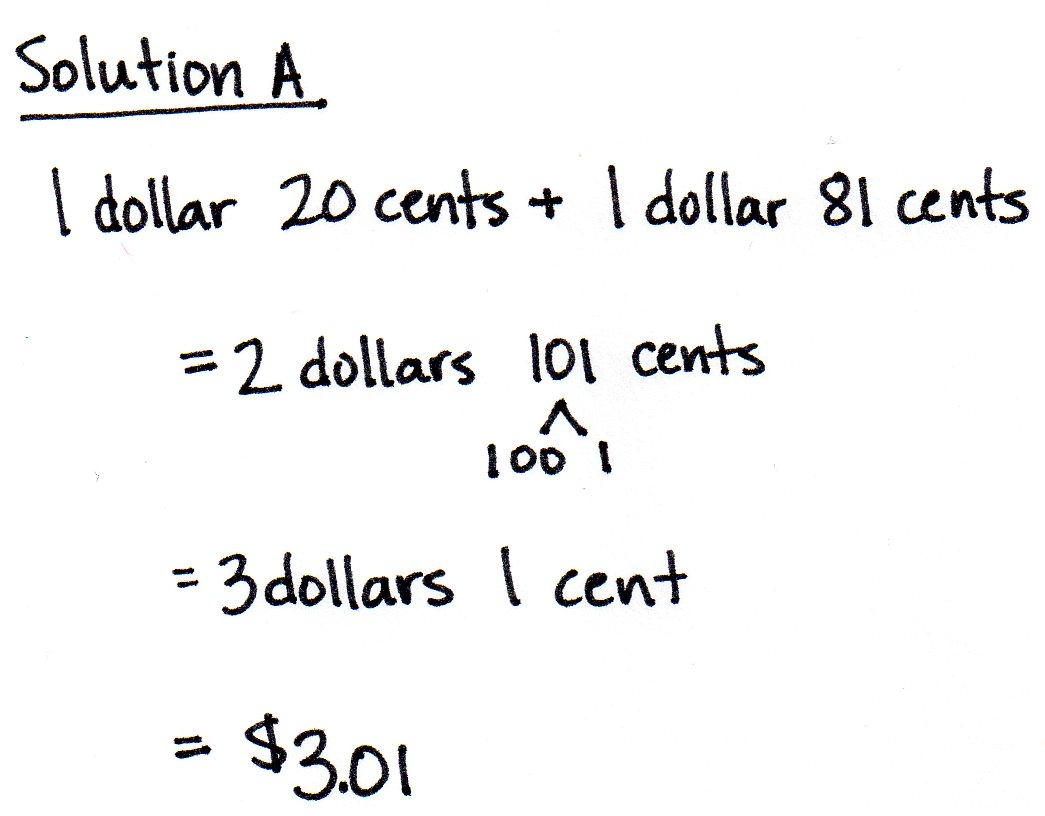 Solution A
1 dollar 20 cents + 1 dollar 81 cents
= 2 dollars 101 cents
100 1
= 3 dollars 1 cent
= $3.01